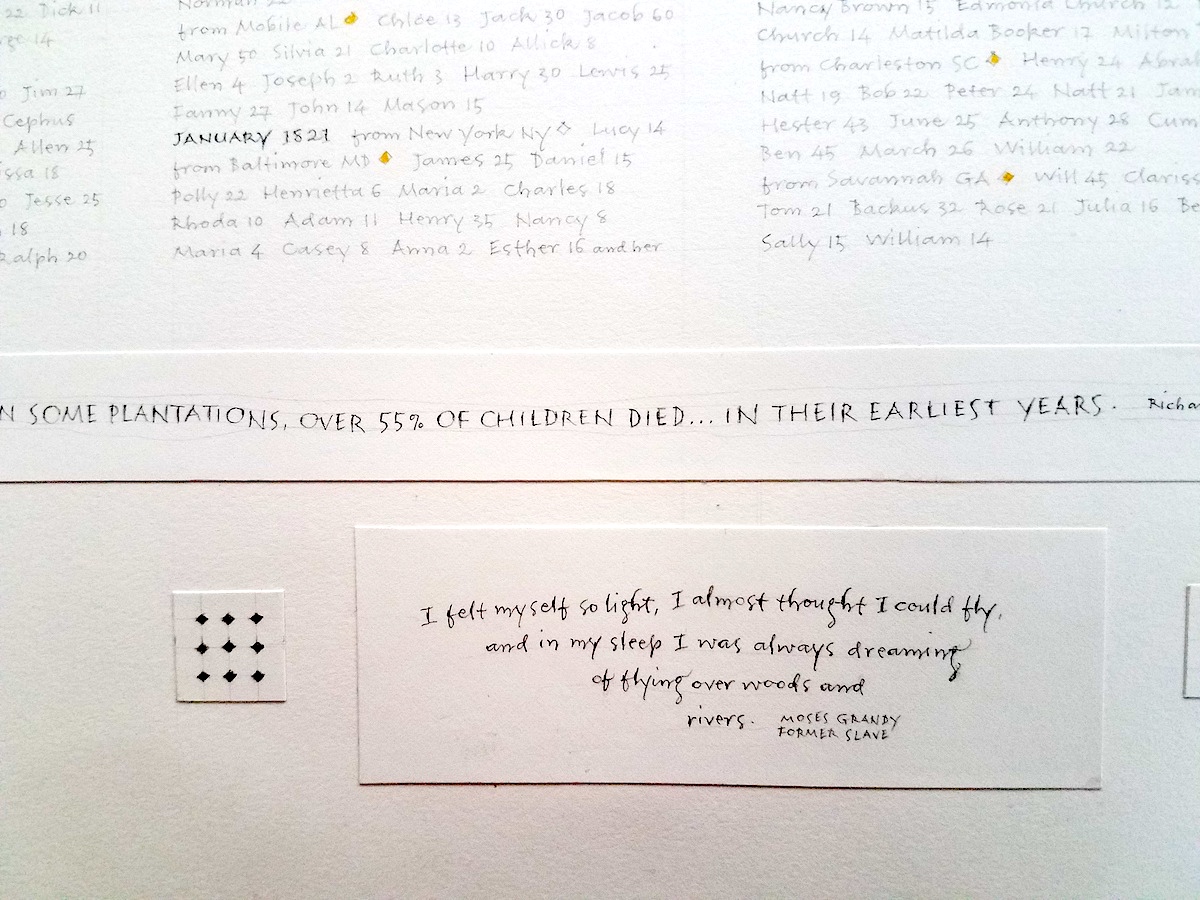 22 Dick 11
14
Jim 27
Cephus
Allen 25
18
Jesse 25
18
Ralph 20
Norman 22
from Mobile AL Chloe 13 Jack 30 Jacob 60
Mary 50 Silvia 21 Charlotte 10 Allick 8
Ellen 4 Joseph 2 Ruth 3 Harry 30 Lewis 25
Fanny 27 John 14 Mason 15
JANUARY 1821 from New York NY Lucy 14
from Baltimore MD James 25 Daniel 15
Polly 22 Henrietta 6 Maria 2 Charles 18
Rhoda 10 Adam 11 Henry 35 Nancy 8
Maria 4 Casey 8 Anna 2 Esther 16 and her
Nancy Brown 15 Edmonia Church 12
Church 14 Matilda Booker 17 Milton
from Charleston SC Henry 24
Natt 19 Bob 22 Peter 24 Natt 21
Hester 43 June 25 Anthony 28
Ben 45 March 26 William 22
from Savannah GA Will 45
Tom 21 Backus 32 Rose 21 Julia 16
Sally 15 William 14
N SOME PLANTATIONS, OVER 55% OF CHILDREN DIED... IN THEIR EARLIEST YEARS. Richar
I felt myself so light, I almost thought I could fly,
and in my sleep I was always dreaming
of flying over woods and
rivers. MOSES GRANDY
FORMER SLAVE